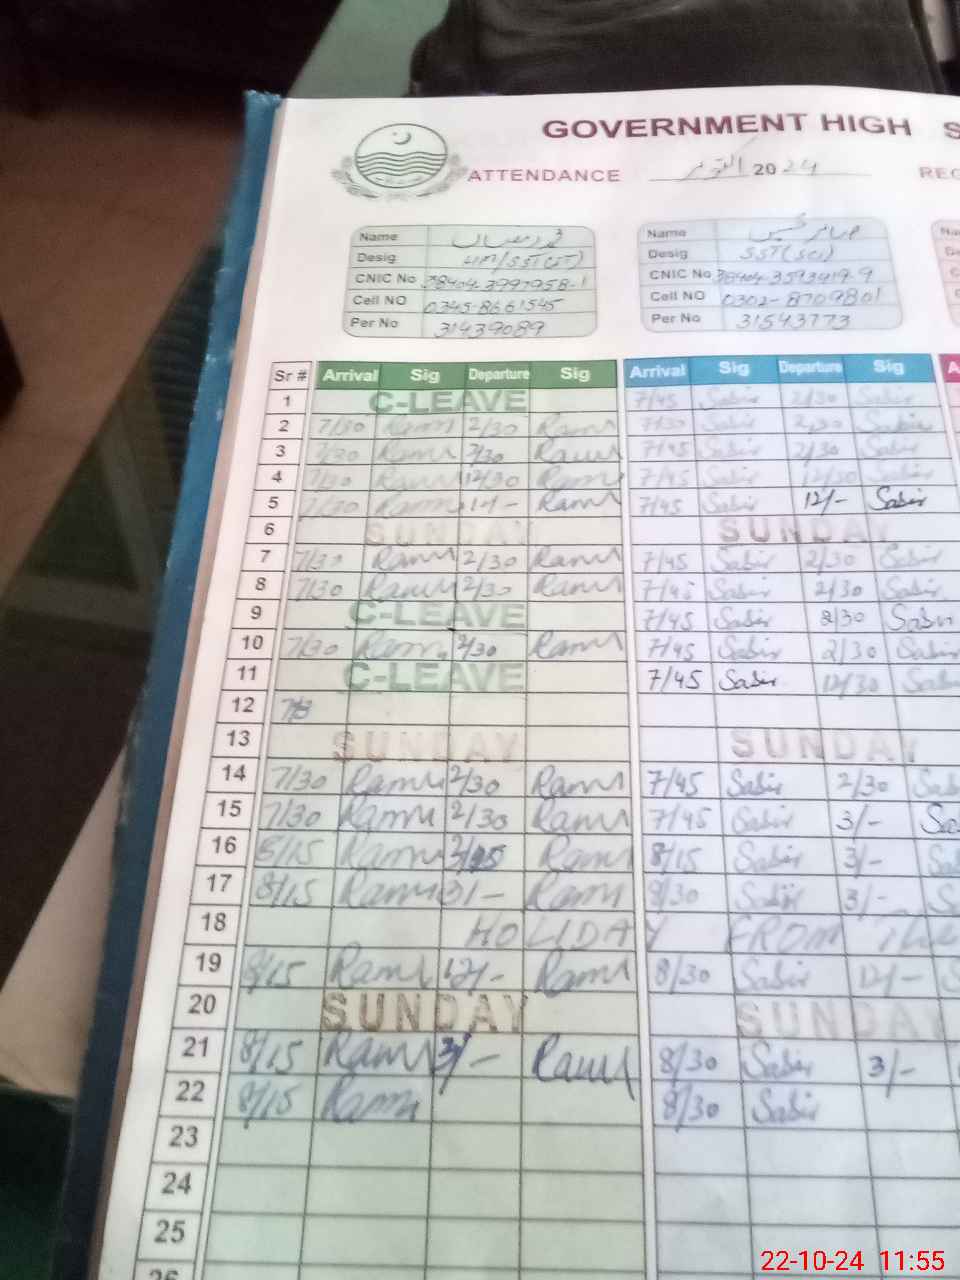 GOVERNMENT HIGH S
ATTENDANCE اکتوبر 2024 REG
Name محمد رمضان
Desig HM/SST(IT)
CNIC No 38404-3997958-1
Cell NO 0345-8661545
Per No 31439089
Name صابر حسین
Desig SST(Sci)
CNIC No 38404-3593419-9
Cell NO 0302-8709801
Per No 31543773
Sr # Arrival Sig Departure Sig Arrival Sig Departure Sig A
1 C-LEAVE 7/45 Sabir 2/30 Sabir
2 7/30 Rams 2/30 Rams 7/30 Sabir 2/30 Sabir
3 7/30 Rams 2/30 Rams 7/45 Sabir 2/30 Sabir
4 7/30 Rams 12/30 Rams 7/45 Sabir 12/30 Sabir
5 7/30 Rams 12/- Rams 7/45 Sabir 12/- Sabir
6 SUNDAY SUNDAY
7 7/30 Rams 2/30 Rams 7/45 Sabir 2/30 Sabir
8 7/30 Rams 2/30 Rams 7/45 Sabir 2/30 Sabir
9 C-LEAVE 7/45 Sabir 2/30 Sabir
10 7/30 Rams 2/30 Rams 7/45 Sabir 2/30 Sabir
11 C-LEAVE 7/45 Sabir 12/30 Sabir
12
13 SUNDAY SUNDAY
14 7/30 Rams 2/30 Rams 7/45 Sabir 2/30 Sab
15 7/30 Rams 2/30 Rams 7/45 Sabir 3/- Sa
16 8/15 Rams Rams 8/15 Sabir 3/- Sa
17 8/15 Rams 3/- Rams 8/30 Sabir 3/- S
18 HOLIDAY FROM THE
19 8/15 Rams 12/- Rams 8/30 Sabir 12/- S
20 SUNDAY SUNDAY
21 8/15 Rams 3/- Rams 8/30 Sabir 3/-
22 8/15 Rams 8/30 Sabir
23
24
25
26
22-10-24 11:55